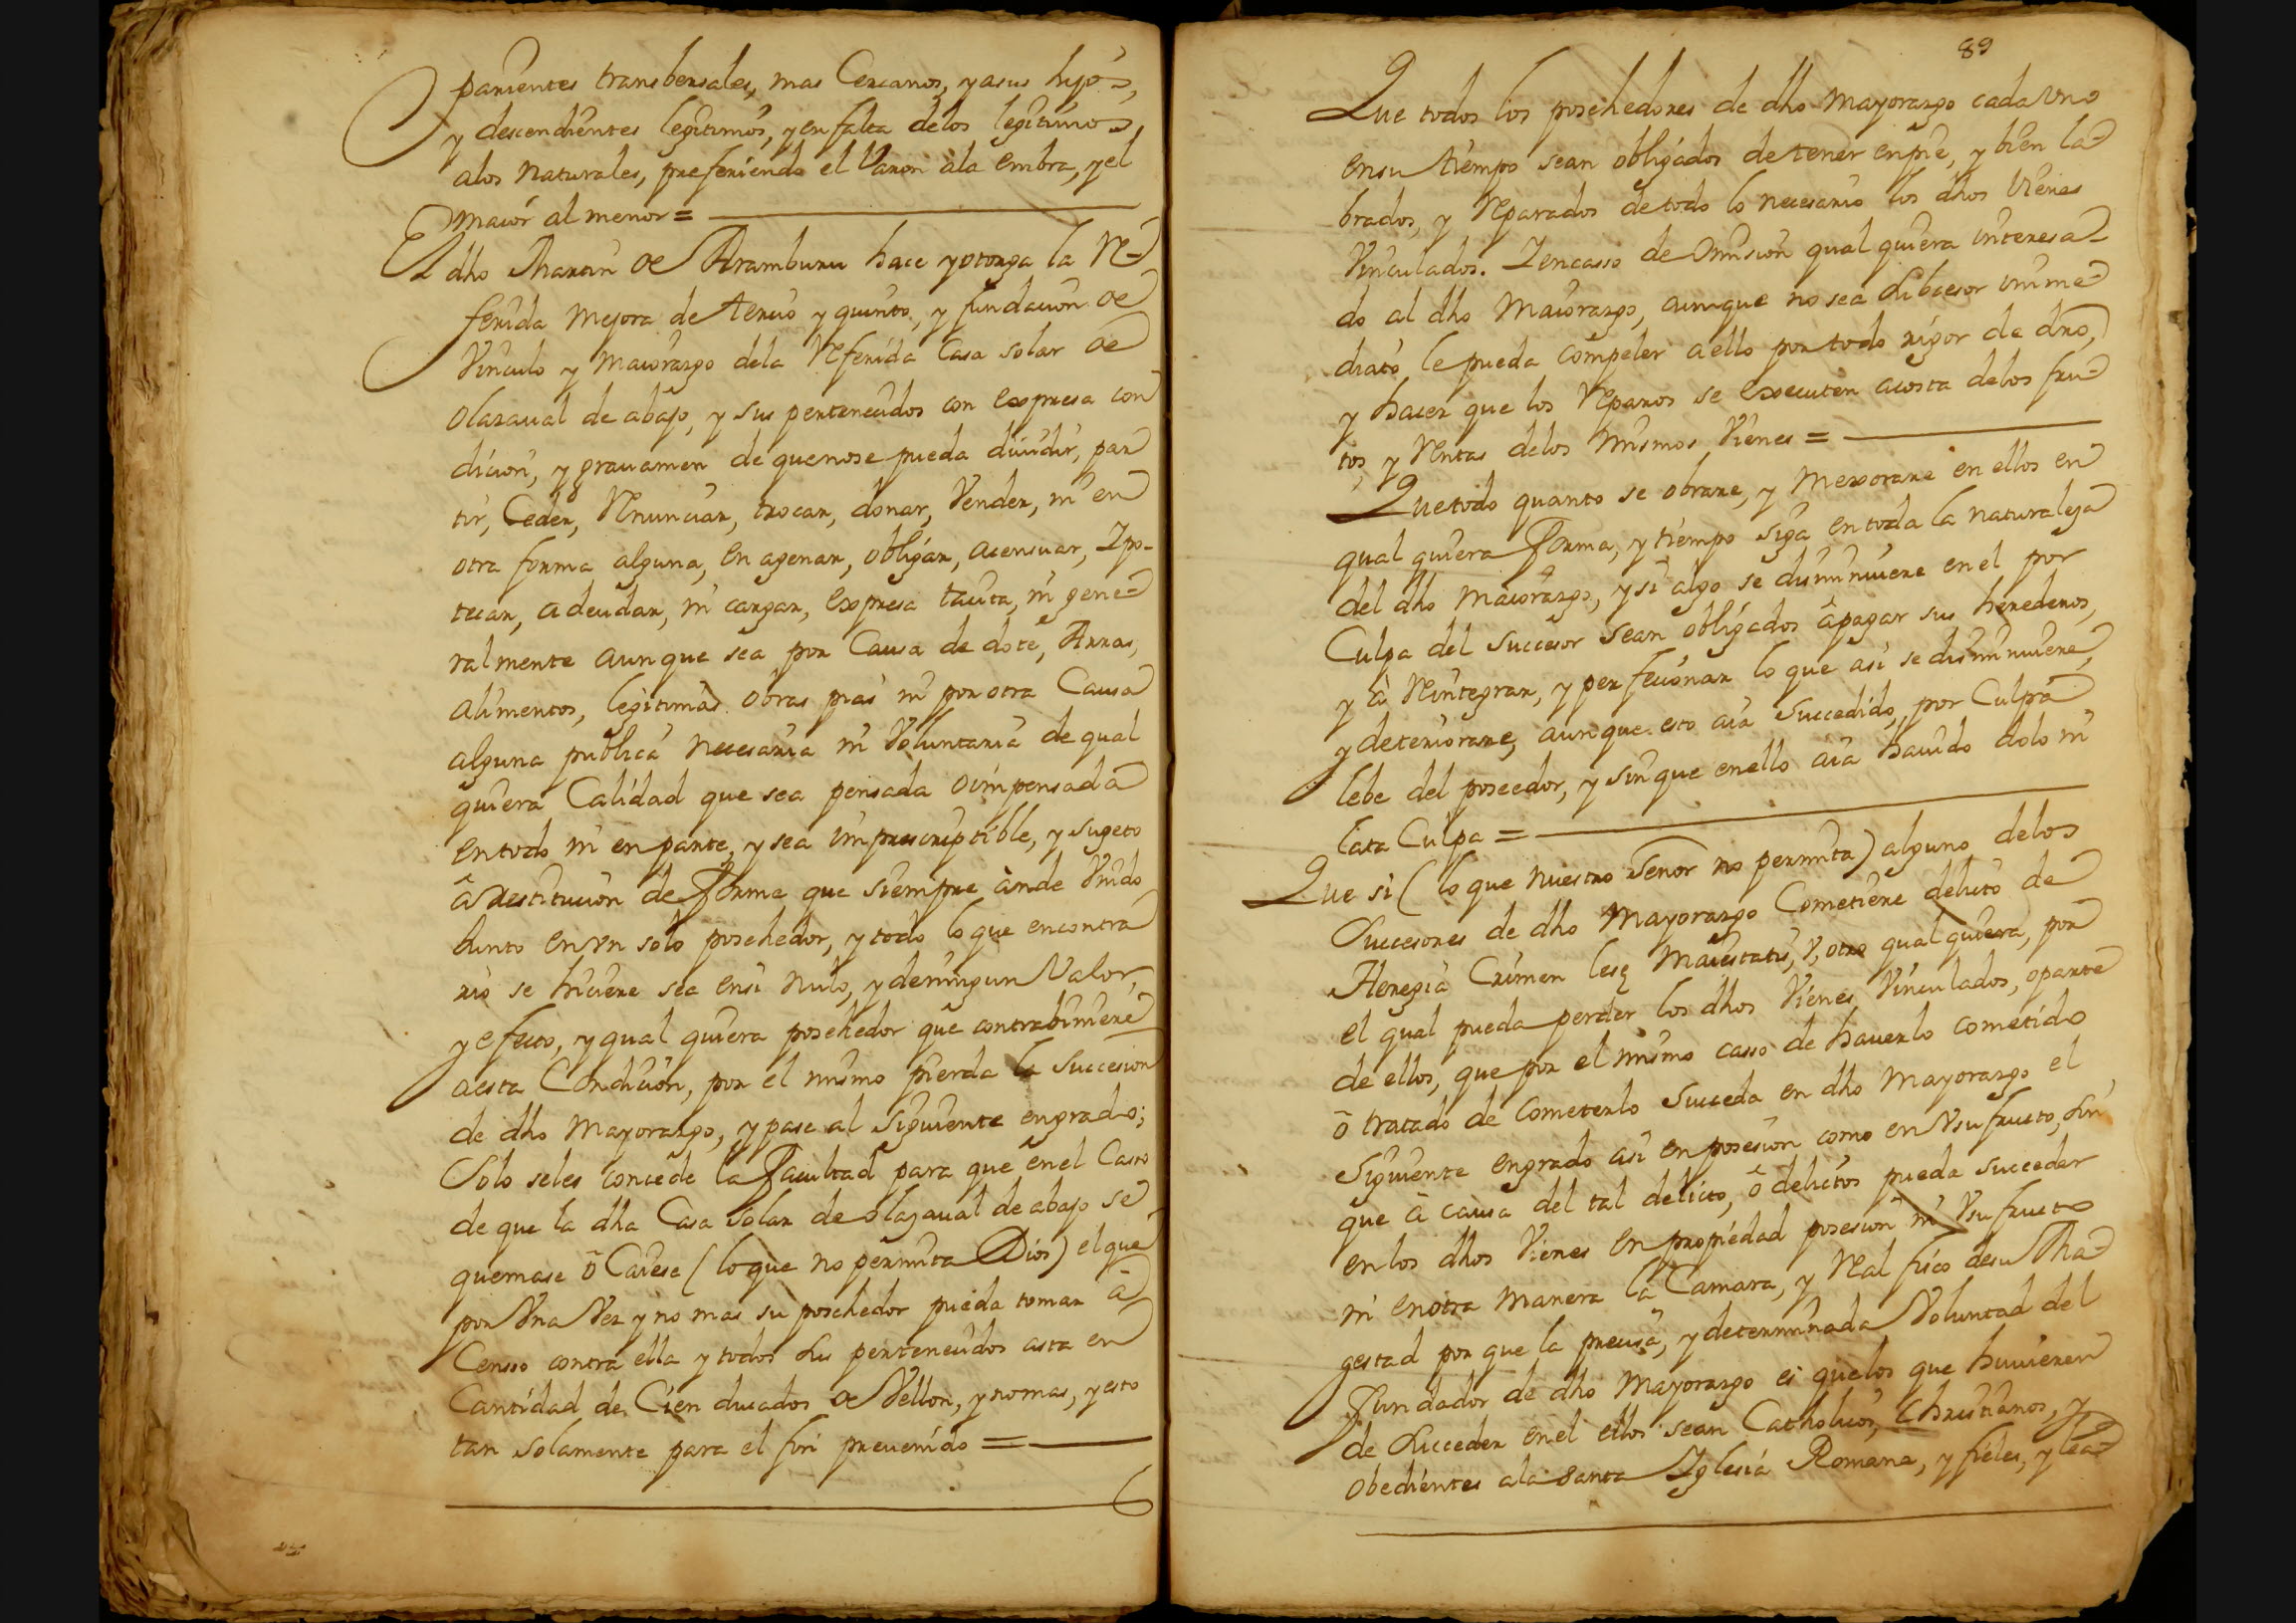 parientes transbersales, mas Cercanos, y asus hijos,
y descendientes legitimos, y en falta delos legitimos,
alos naturales, prefiriendo el Varon ala embra, y el
maior al menor =
El dho Martin de Aramburu hace y otorga la Re
ferida Mejora de tercio y quinto, y fundacion de
Vinculo y maiorazgo dela Referida Casa solar de
Olazaual de abajo, y sus pertenecidos con expresa con
dicion, y grauamen de quenose pueda diuidir, par
tir, Ceder, Renunciar, trocar, donar, Vender, ni en
otra forma alguna, en agenar, obligar, acensuar, Ypo-
tecar, adeudar, ni cargar, expresa tacita, ni gene
ralmente aunque sea por Causa de dote, Arras,
alimentos, legitimas obras pias ni por otra Causa
alguna publica necesaria ni Voluntaria de qual
quiera Calidad que sea pensada o impensada
entodo ni en parte, y sea imprescriptible, y sugeto
â restitucion de forma que siempre ânde Vnido
Junto en vn solo posehedor, y todo lo que encontra
rio se hiciere sea ensi nulo, y deningun Valor,
y efecto, y qual quiera posehedor que contrabiniere
aesta Condicion, por el mismo pierda la Succesion
de dho Mayorazgo, y pase al siguiente engrado;
Solo seles concede la facultad para que en el Casso
de que la dha Casa solar de olazaual de abajo se
quemase ô Caiese (lo que no permita Dios) el que
por Vna Vez y no mas su posehedor pueda tomar â
Censso contra ella y todos sus pertenecidos asta en
Cantidad de Cien ducados de Vellon, y no mas, y esto
tan solamente para el fin preuenido =
89
Que todos los posehedores de dho Mayorazgo cada vno
ensu tiempo sean obligados de tener enpie, y bien la
brados, y Reparados detodo lo necesario los dhos Vienes
Vinculados. Y encasso de Omision qual quiera interesa
do al dho Maiorazgo, aunque no sea subcesor inme
diato, le pueda compeler aello por todo rigor de dro,
y hacer que los Reparos se executen acosta delos fru
tos, y Rentas delos mismos Vienes =
Quetodo quanto se obrare, y mexorare en ellos en
qual quiera forma, y tiempo siga en toda la naturaleza
del dho maiorazgo, y si algo se disminuiere en el por
Culpa del Succesor sean obligados â pagar sus herederos,
y â Reintegrar, y perfecionar lo que asi se disminuiere,
y deteriorare, aunque esto aia Succedido, por Culpa
lebe del poseedor, y sinque enello aia hauido dolo ni
lata Culpa =
Que si (lo que nuestro Senor no permita) alguno delos
Succesores de dho Mayorazgo Cometiere delito de
Heregia Crimen lesę Maiestatis, V, otro qual quiera, por
el qual pueda perder los dhos Vienes Vinculados, o parte
de ellos, que por el mismo casso de hauerlo cometido
ô tratado de cometerlo Succeda en dho Mayorazgo el
Siguiente engrado asi en posesion como en Vsufructo, sin
que â causa del tal delicto, ô delictos pueda succeder
en los dhos Vienes en propiedad posesion ni Vsufructo
ni enotra manera la Camara, y Real fisco desu Ma
gestad por que la precisa, y determinada Voluntad del
fundador de dho Mayorazgo es quelos que huuieren
de Succeder en el ellos sean Catholicos, Christianos, y
obedientes ala santa Yglesia Romana, y fieles, y lea